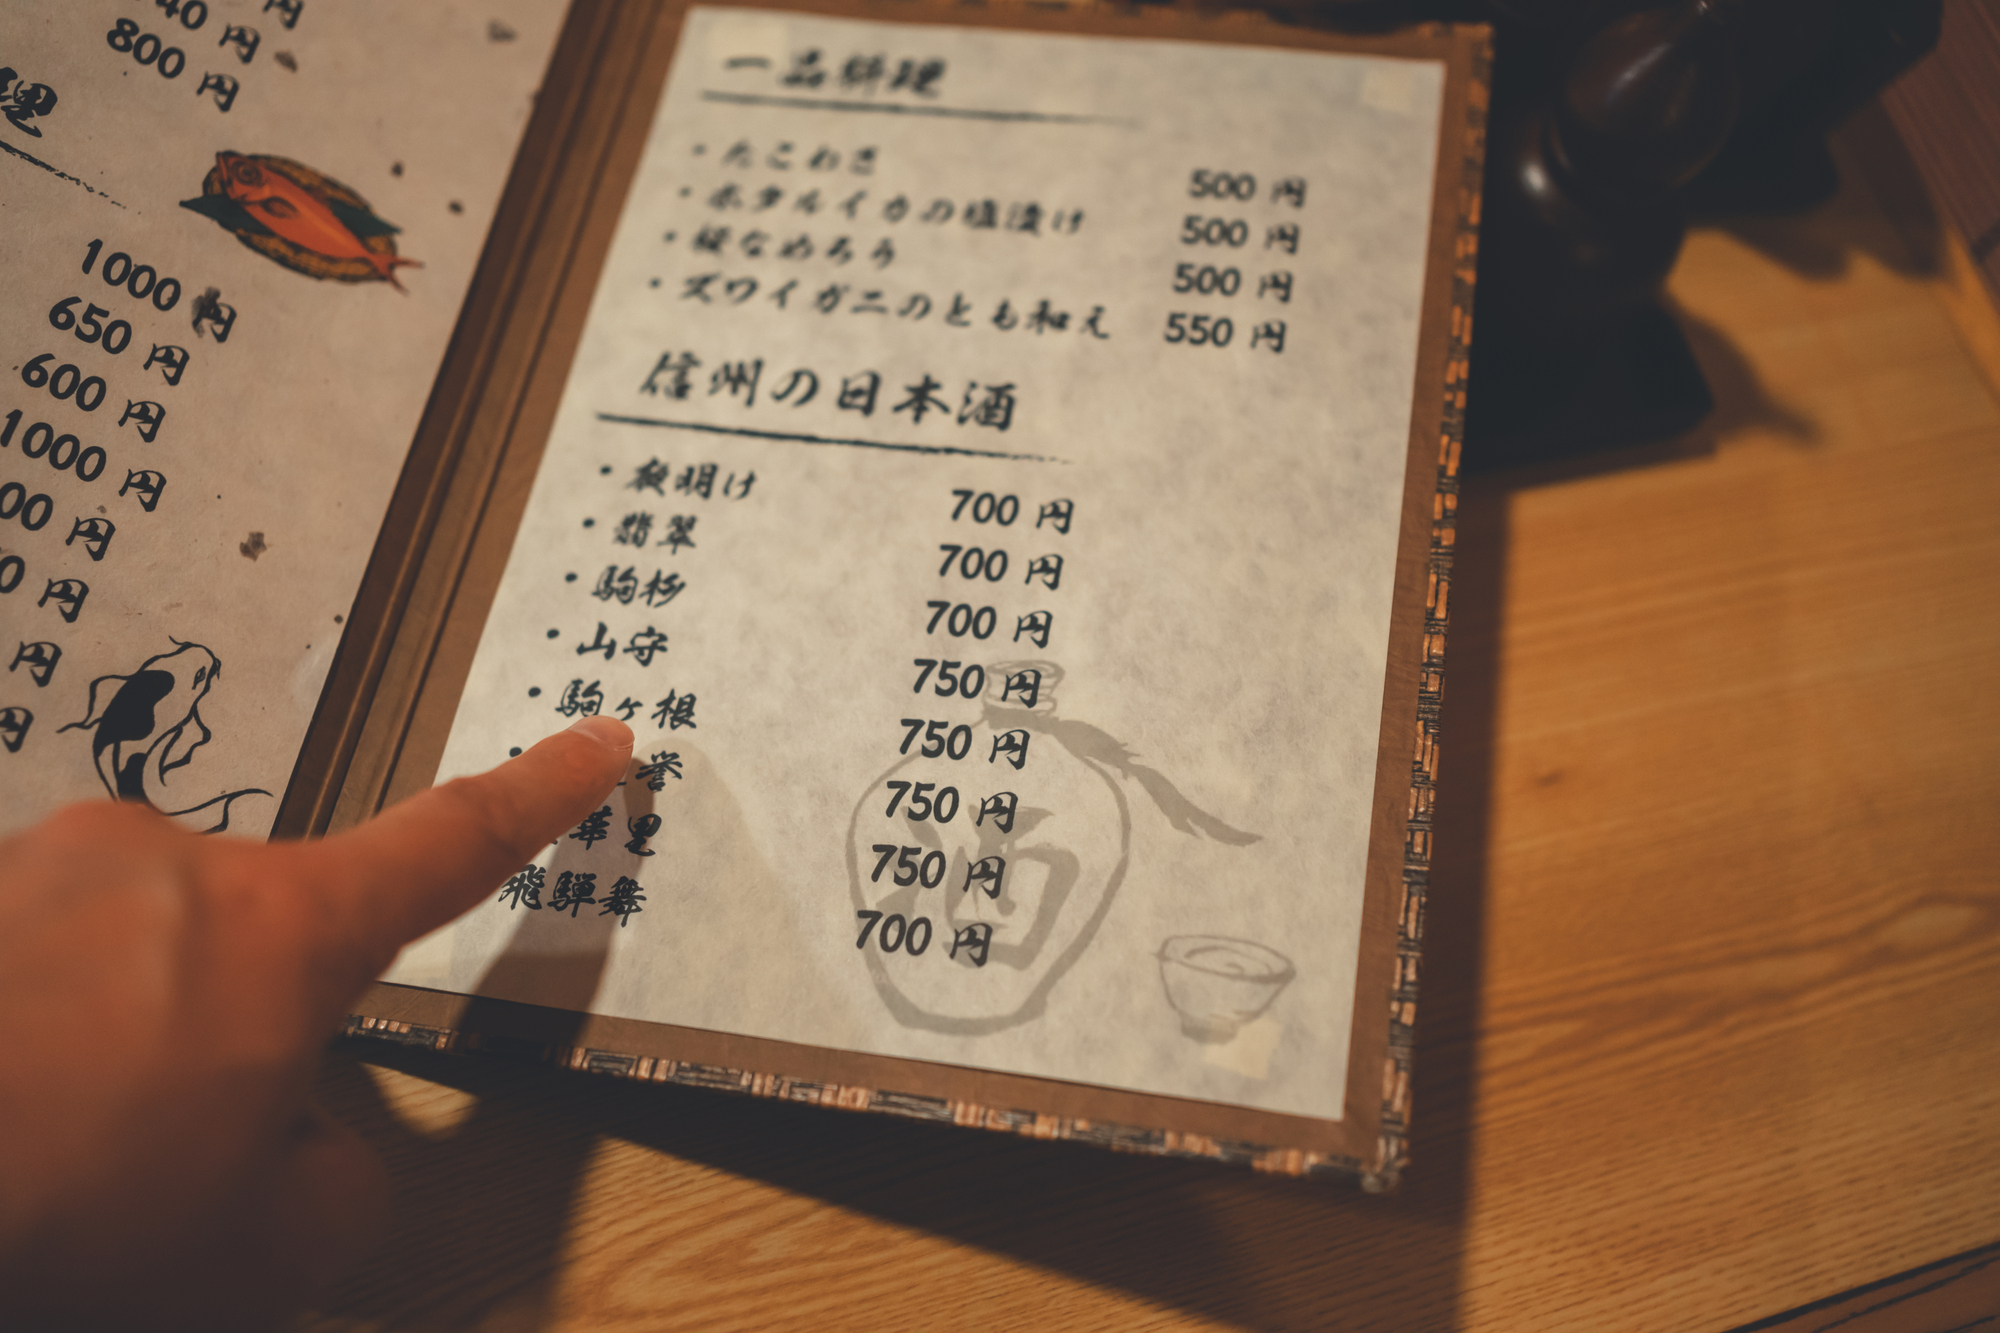 40 円
800 円
理
1000 円
650 円
600 円
1000 円
00 円
0 円
円
円
一品料理
・たこわさ 500 円
・ホタルイカの塩漬け 500 円
・鯵なめろう 500 円
・ズワイガニのとも和え 550 円
信州の日本酒
・夜明け 700 円
・翡翠 700 円
・駒杉 700 円
・山守 750 円
・駒ヶ根 750 円
・誉 750 円
華里 750 円
飛騨舞 700 円
酒